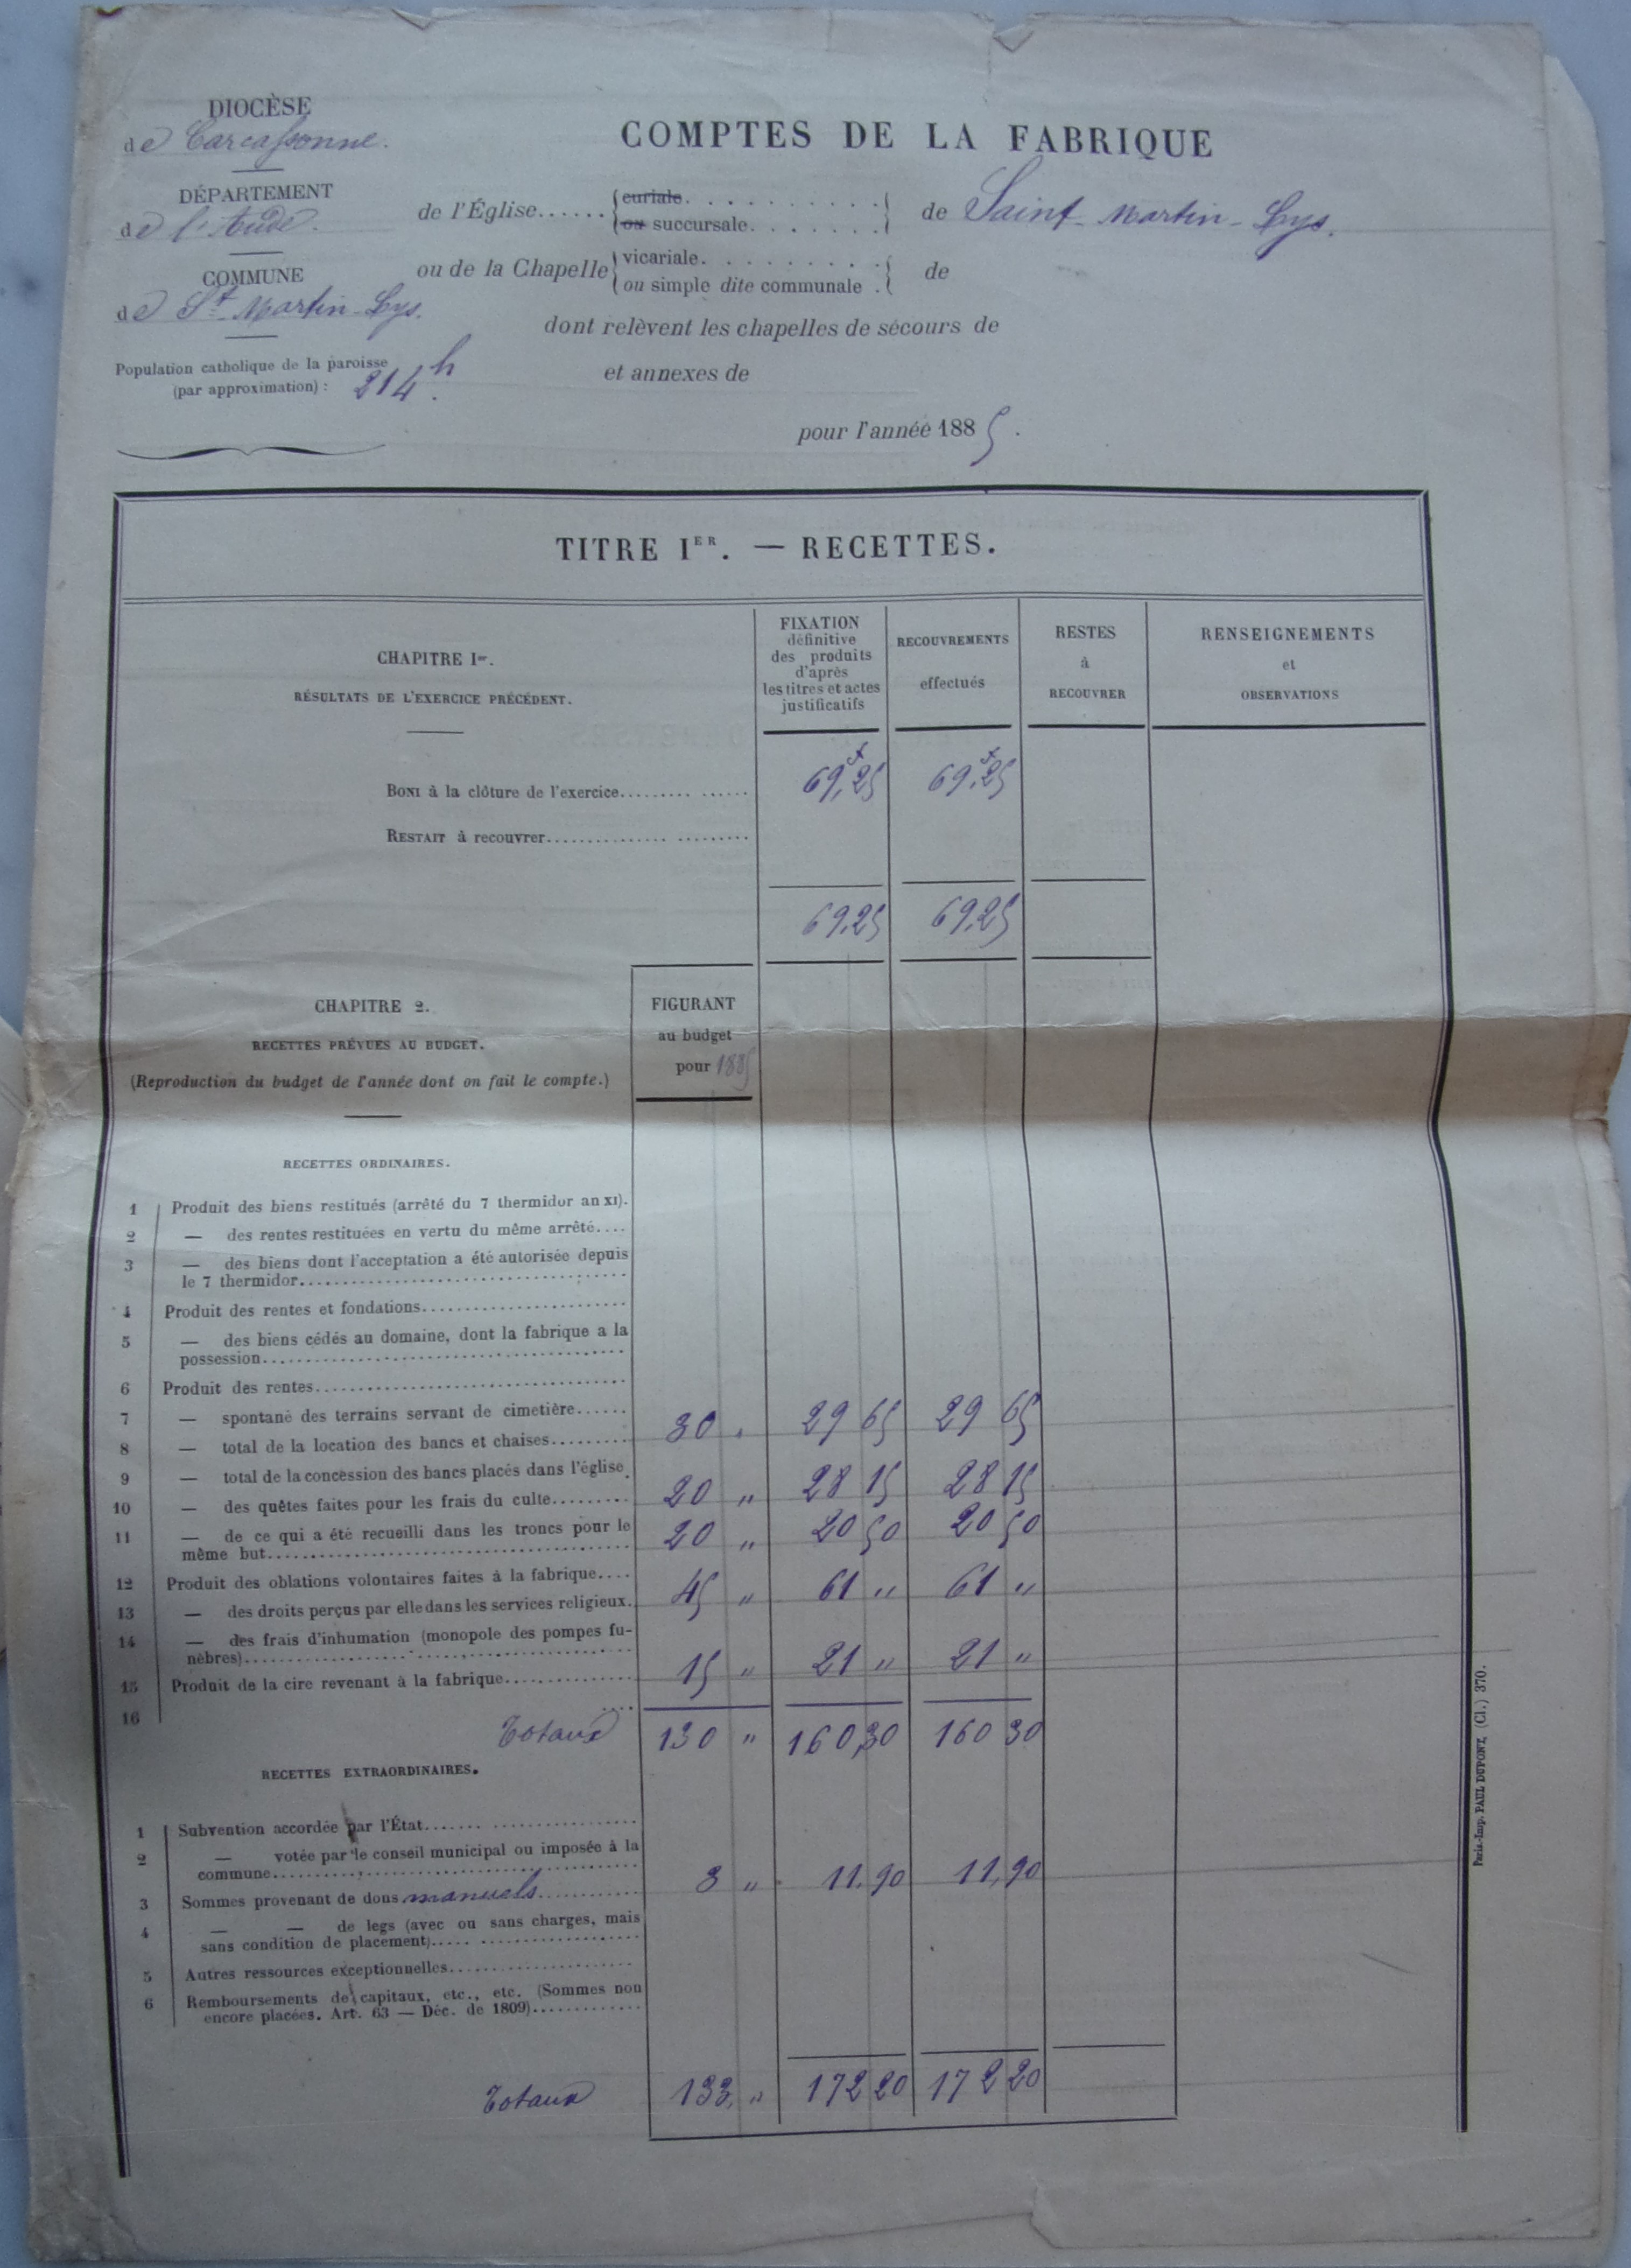 DIOCÈSE
de Carcassonne.
DÉPARTEMENT
de l'Aude.
COMMUNE
de St Martin-Lys.
Population catholique de la paroisse
(par approximation) : 214 h.
COMPTES DE LA FABRIQUE
de l'Église...... { curiale. . . . . . . . . . . } de Saint-Martin-Lys.
ou succursale. . . . . . .
ou de la Chapelle { vicariale. . . . . . . . . } de
ou simple dite communale .
dont relèvent les chapelles de sécours de
et annexes de
pour l'année 1885.
TITRE IER. — RECETTES.
CHAPITRE Ier.
RÉSULTATS DE L'EXERCICE PRÉCÉDENT.
FIXATION
définitive
des produits
d'après
les titres et actes
justificatifs
RECOUVREMENTS
effectués
RESTES
à
RECOUVRER
RENSEIGNEMENTS
et
OBSERVATIONS
BONI à la clôture de l'exercice............... 69,25 69,25
RESTAIT à recouvrer......................
69,25 69,25
CHAPITRE 2.
RECETTES PRÉVUES AU BUDGET.
(Reproduction du budget de l'année dont on fait le compte.)
FIGURANT
au budget
pour 1885
RECETTES ORDINAIRES.
1 Produit des biens restitués (arrêté du 7 thermidor an XI).
2 — des rentes restituées en vertu du même arrêté....
3 — des biens dont l'acceptation a été autorisée depuis
le 7 thermidor........................
4 Produit des rentes et fondations........................
5 — des biens cédés au domaine, dont la fabrique a la
possession........................
6 Produit des rentes........................
7 — spontané des terrains servant de cimetière...... 30 . 29 65 29 65
8 — total de la location des bancs et chaises.........
9 — total de la concession des bancs placés dans l'église. 20 " 28 15 28 15
10 — des quêtes faites pour les frais du culte.........
11 — de ce qui a été recueilli dans les troncs pour le 20 " 20 50 20 50
même but........................
12 Produit des oblations volontaires faites à la fabrique.... 45 " 61 " 61 "
13 — des droits perçus par elle dans les services religieux.
14 — des frais d'inhumation (monopole des pompes fu-
nèbres)........................ 15 " 21 " 21 "
15 Produit de la cire revenant à la fabrique.............
16 ....
Totaux 130 " 160,30 160 30
RECETTES EXTRAORDINAIRES.
1 Subvention accordée par l'État........................
2 — votée par le conseil municipal ou imposée à la
commune........................ 3 " 11.90 11,90
3 Sommes provenant de dons manuels............
4 — — de legs (avec ou sans charges, mais
sans condition de placement)........................
5 Autres ressources exceptionnelles.....................
6 Remboursements de capitaux, etc., etc. (Sommes non
encore placées. Art. 63 — Déc. de 1809).............
Totaux 133, " 172 20 172 20
Paris.-Imp. PAUL DUPONT, (Cl.) 370.